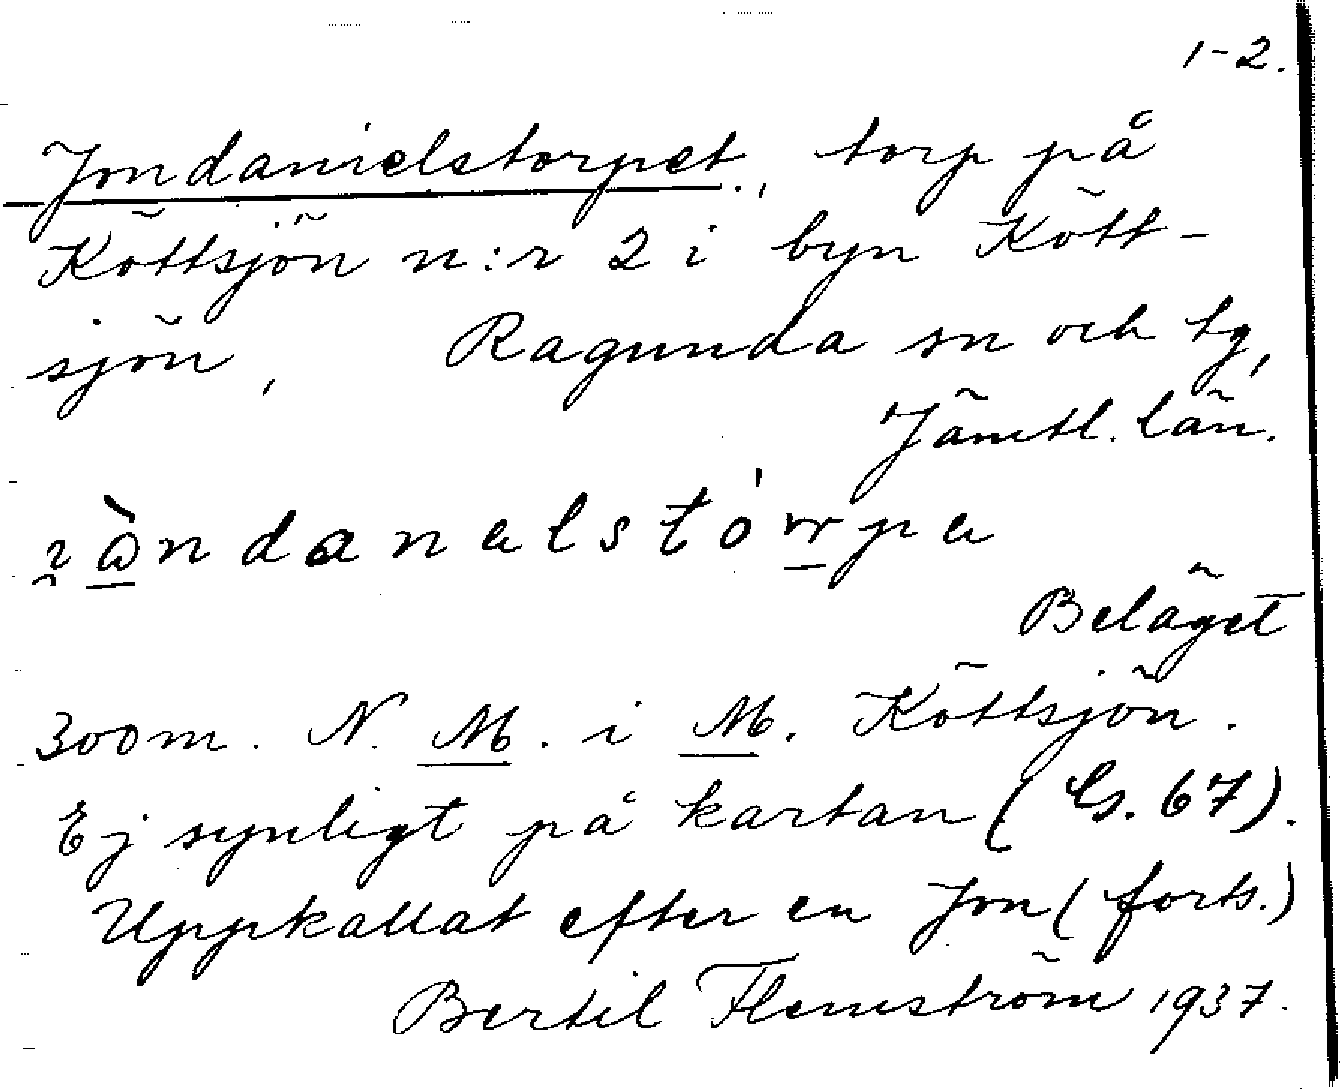 1-2.
Jondanielstorpet, torp på
Köttsjön n:r 2 i byn Kött-
sjön, Ragunda sn och tg,
Jämtl. län.
Beläget
300 m. N. M. i M. Köttsjön.
Ej synligt på kartan (Gs. 67).
Uppkallat efter en Jon (forts.)
Bertil Flemström 1937.